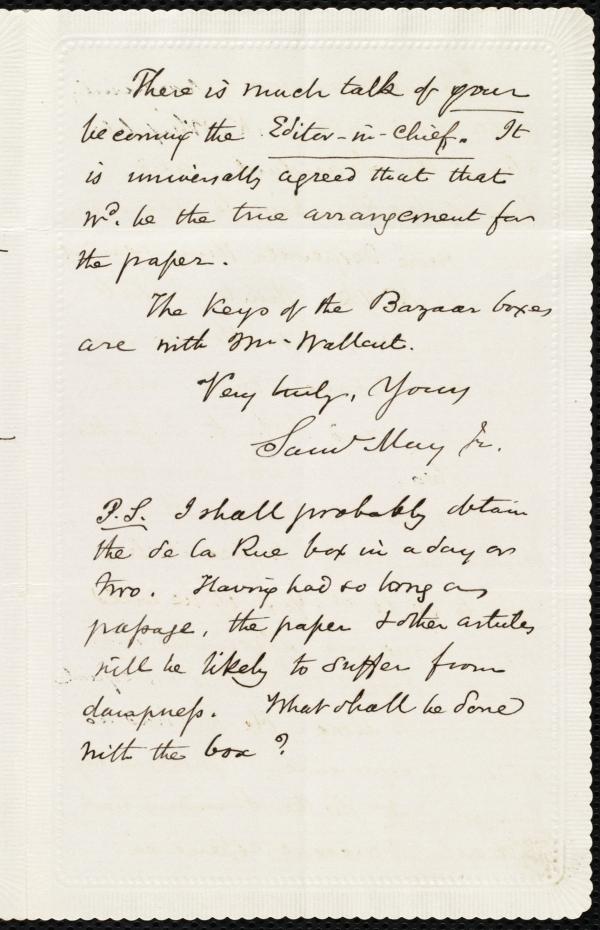 There is much talk of your
becoming the Editor-in-Chief. It
is universally agreed that that
wd. be the true arrangement for
the paper.
The keys of the Bazaar boxes
are with Mr. Wallcut.
Very truly, Yours
Saml. May Jr.
P.S. I shall probably obtain
the de la Rue box in a day or
two. Having had so long a
passage, the paper & other articles
will be likely to suffer from
dampness. What shall be done
with the box?